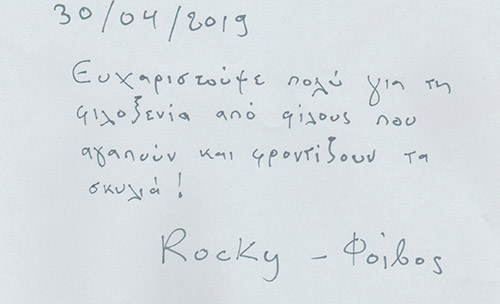 30/04/2019
Ευχαριστούμε πολύ για τη
φιλοξενία από φίλους που
αγαπούν και φροντίζουν τα
σκυλιά!
Rocky - Φοίβος